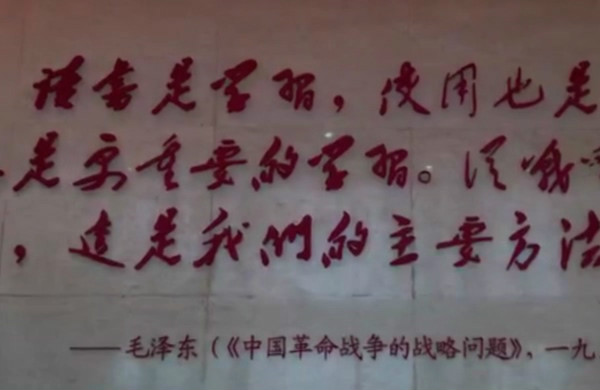 读书是学習，使用也是
是更重要的学習。從戰
，這是我們的主要方法
——毛泽东（《中国革命战争的战略问题》，一九